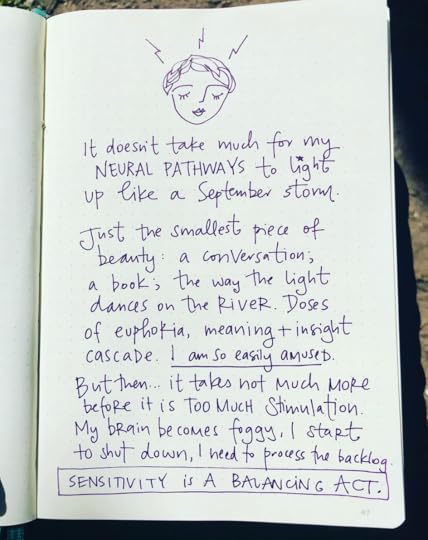 It doesn't take much for my
NEURAL PATHWAYS to light
up like a September storm.
Just the smallest piece of
beauty: a conversation;
a book; the way the light
dances on the RIVER. Doses
of euphoria, meaning + insight
cascade. I am so easily amused.
But then... it takes not much MORE
before it is TOO MUCH Stimulation.
My brain becomes foggy, I start
to shut down, I need to process the backlog.
SENSITIVITY is A BALANCING ACT.